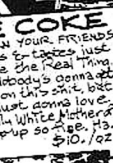 E COKE
N YOUR FRIENDS
s & tastes just
e the Real Thing.
obody's gonna get
on this shit, but
ust gonna love
ly White Motherf
up so fine. Ha.
$10./oz